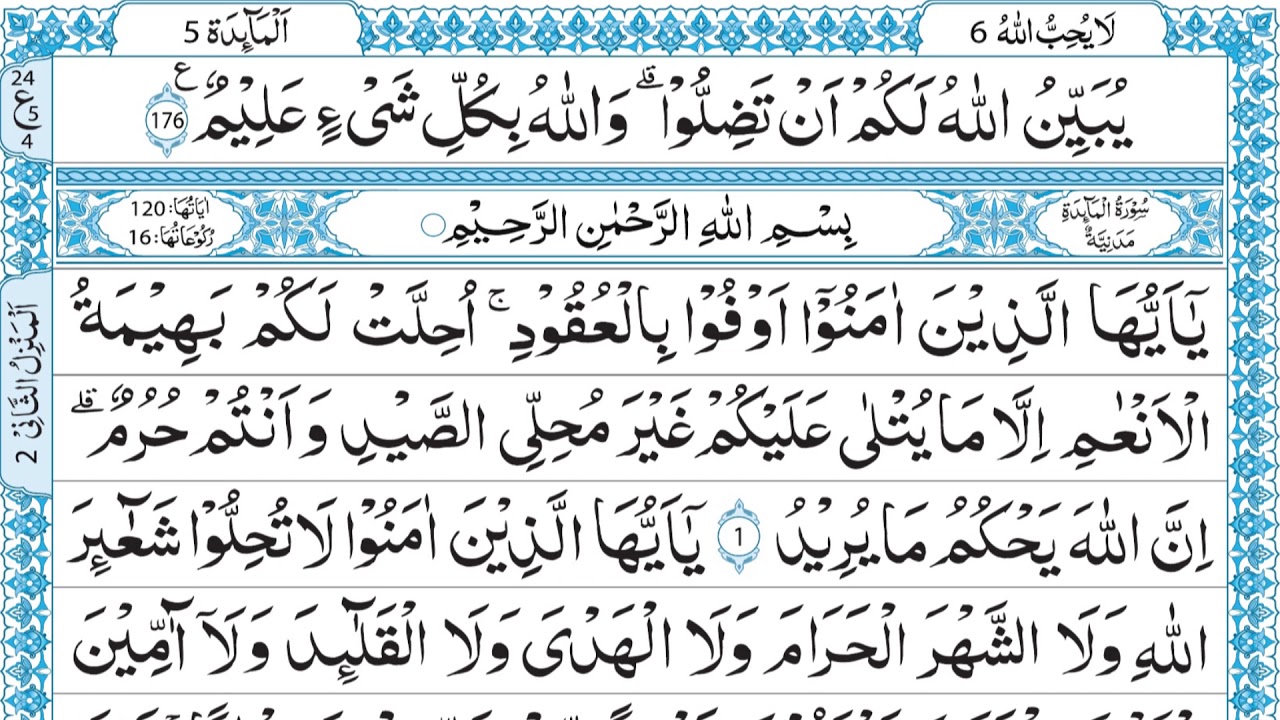 لَا يُحِبُّ اللّٰهُ 6
اَلْمَآىِٕدَة 5
24
ع 5
4
يُبَيِّنُ اللّٰهُ لَكُمْ اَنْ تَضِلُّوْا ؕ وَاللّٰهُ بِكُلِّ شَیْءٍ عَلِيْمٌ 176 ع
سُوْرَةُ الْمَآىِٕدَةِ
مَدَنِيَّةٌ
بِسْمِ اللّٰهِ الرَّحْمٰنِ الرَّحِيْمِ
اٰيَاتُهَا: 120
رُكُوْعَاتُهَا: 16
يٰۤاَيُّهَا الَّذِيْنَ اٰمَنُوْۤا اَوْفُوْا بِالْعُقُوْدِ ۚ اُحِلَّتْ لَكُمْ بَهِيْمَةُ
الْاَنْعٰمِ اِلَّا مَا يُتْلٰى عَلَيْكُمْ غَيْرَ مُحِلِّی الصَّيْدِ وَ اَنْتُمْ حُرُمٌ ؕ
اِنَّ اللّٰهَ يَحْكُمُ مَا يُرِيْدُ 1 يٰۤاَيُّهَا الَّذِيْنَ اٰمَنُوْا لَا تُحِلُّوْا شَعٰٓىِٕرَ
اللّٰهِ وَلَا الشَّهْرَ الْحَرَامَ وَلَا الْهَدْیَ وَلَا الْقَلَآىِٕدَ وَلَاۤ آٰمِّيْنَ
اَلْمَنْزِلُ الثَّانِیْ 2